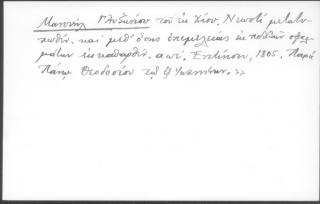 Μανουήλ Γλυζωνίου τοῦ ἐκ Χίου. Νεωστὶ μετατυ-
πωθὲν καὶ μεθ' ὅσης ἐπιμελείας ἐκ πολλῶν σφαλ-
μάτων ἐκκαθαρθέν. αωε. Ἐνετίησιν, 1805. Παρὰ
Πάνῳ Θεοδοσίου τῷ ἐξ Ἰωαννίνων. >>